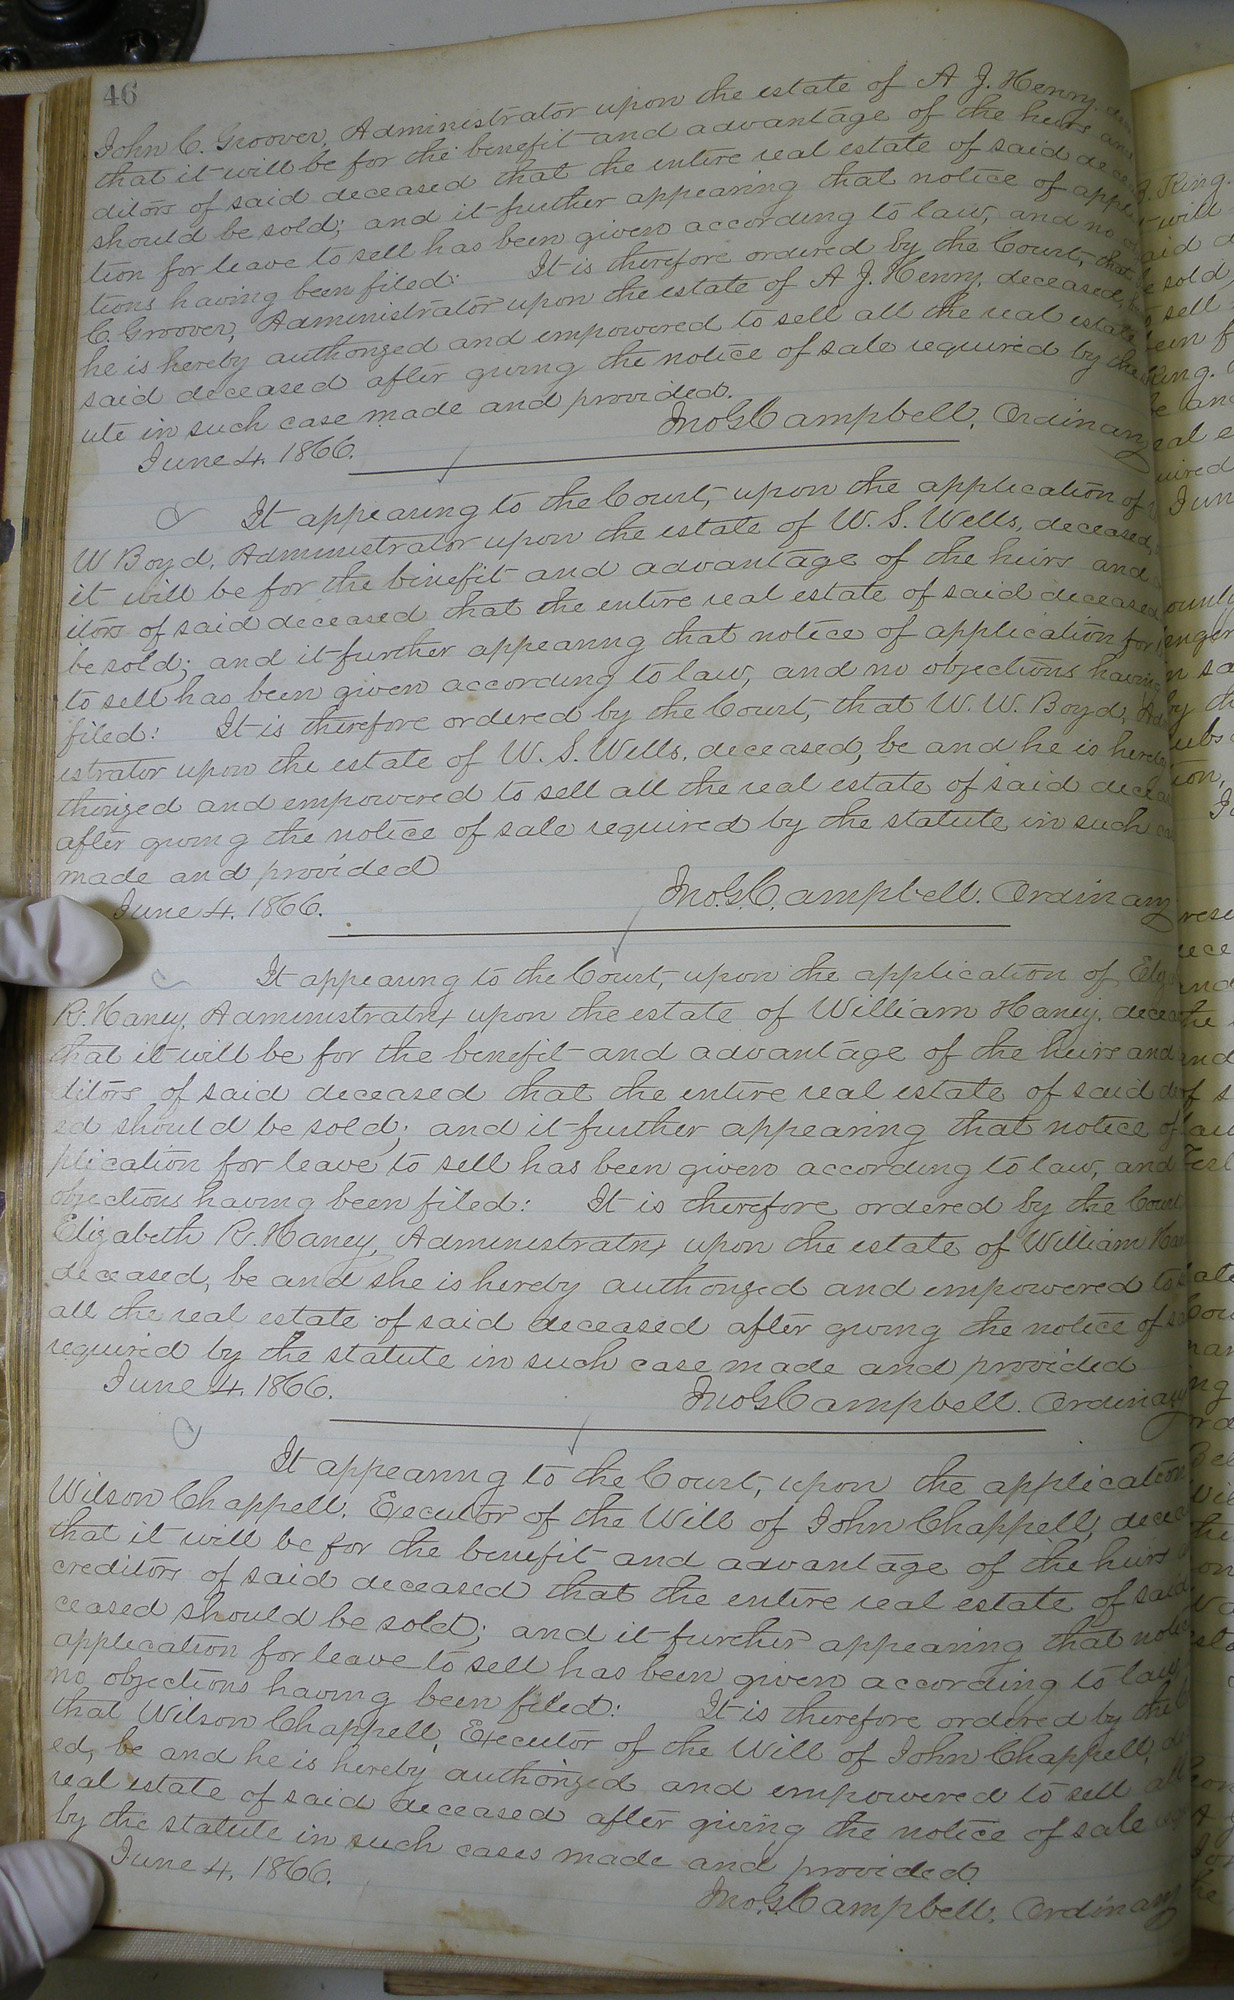 46
John C. Groover, Administrator upon the estate of A J. Henry,
that it will be for the benefit and advantage of the heirs and
ditors of said deceased that the entire real estate of said dece
should be sold; and it further appearing that notice of appli
tion for leave to sell has been given according to law, and no
tions having been filed: It is therefore ordered by the Court, that
C. Groover, Administrator upon the estate of A J. Henry, deceased,
he is hereby authorized and empowered to sell all the real estate
said deceased after giving the notice of sale required by the
ute in such case made and provided.
June 4. 1866. Jno G Campbell, Ordinary
It appearing to the Court, upon the application of
W Boyd, Administrator upon the estate of W. S. Wells, deceased,
it will be for the benefit and advantage of the heirs and
itors of said deceased that the entire real estate of said deceased
be sold; and it further appearing that notice of application for
to sell has been given according to law, and no objections having
filed: It is therefore ordered by the Court, that W. W. Boyd, Ad
istrator upon the estate of W. S. Wells, deceased, be and he is hereby
thorized and empowered to sell all the real estate of said decea
after giving the notice of sale required by the statute in such
made and provided
June 4. 1866. Jno. G. Campbell. Ordinary
It appearing to the Court, upon the application of Eliza
R. Haney, Administratrix upon the estate of William Haney, decea
that it will be for the benefit and advantage of the heirs and
ditors of said deceased that the entire real estate of said de
ed should be sold; and it further appearing that notice of
plication for leave to sell has been given according to law, and
objections having been filed: It is therefore ordered by the Court
Elizabeth R. Haney, Administratrix upon the estate of William Han
deceased, be and she is hereby authorized and empowered to
all the real estate of said deceased after giving the notice of sa
required by the statute in such case made and provided
June 4. 1866. Jno G Campbell. Ordinary
It appearing to the Court, upon the application
Wilson Chappell, Executor of the Will of John Chappell, decea
that it will be for the benefit and advantage of the heirs
creditors of said deceased that the entire real estate of said
ceased should be sold; and it further appearing that notice
application for leave to sell has been given according to law,
no objections having been filed: It is therefore ordered by the
that Wilson Chappell, Executor of the Will of John Chappell, de
ed, be and he is hereby authorized and empowered to sell all
real estate of said deceased after giving the notice of sale
by the statute in such cases made and provided.
June 4. 1866. Jno. G. Campbell, Ordinary